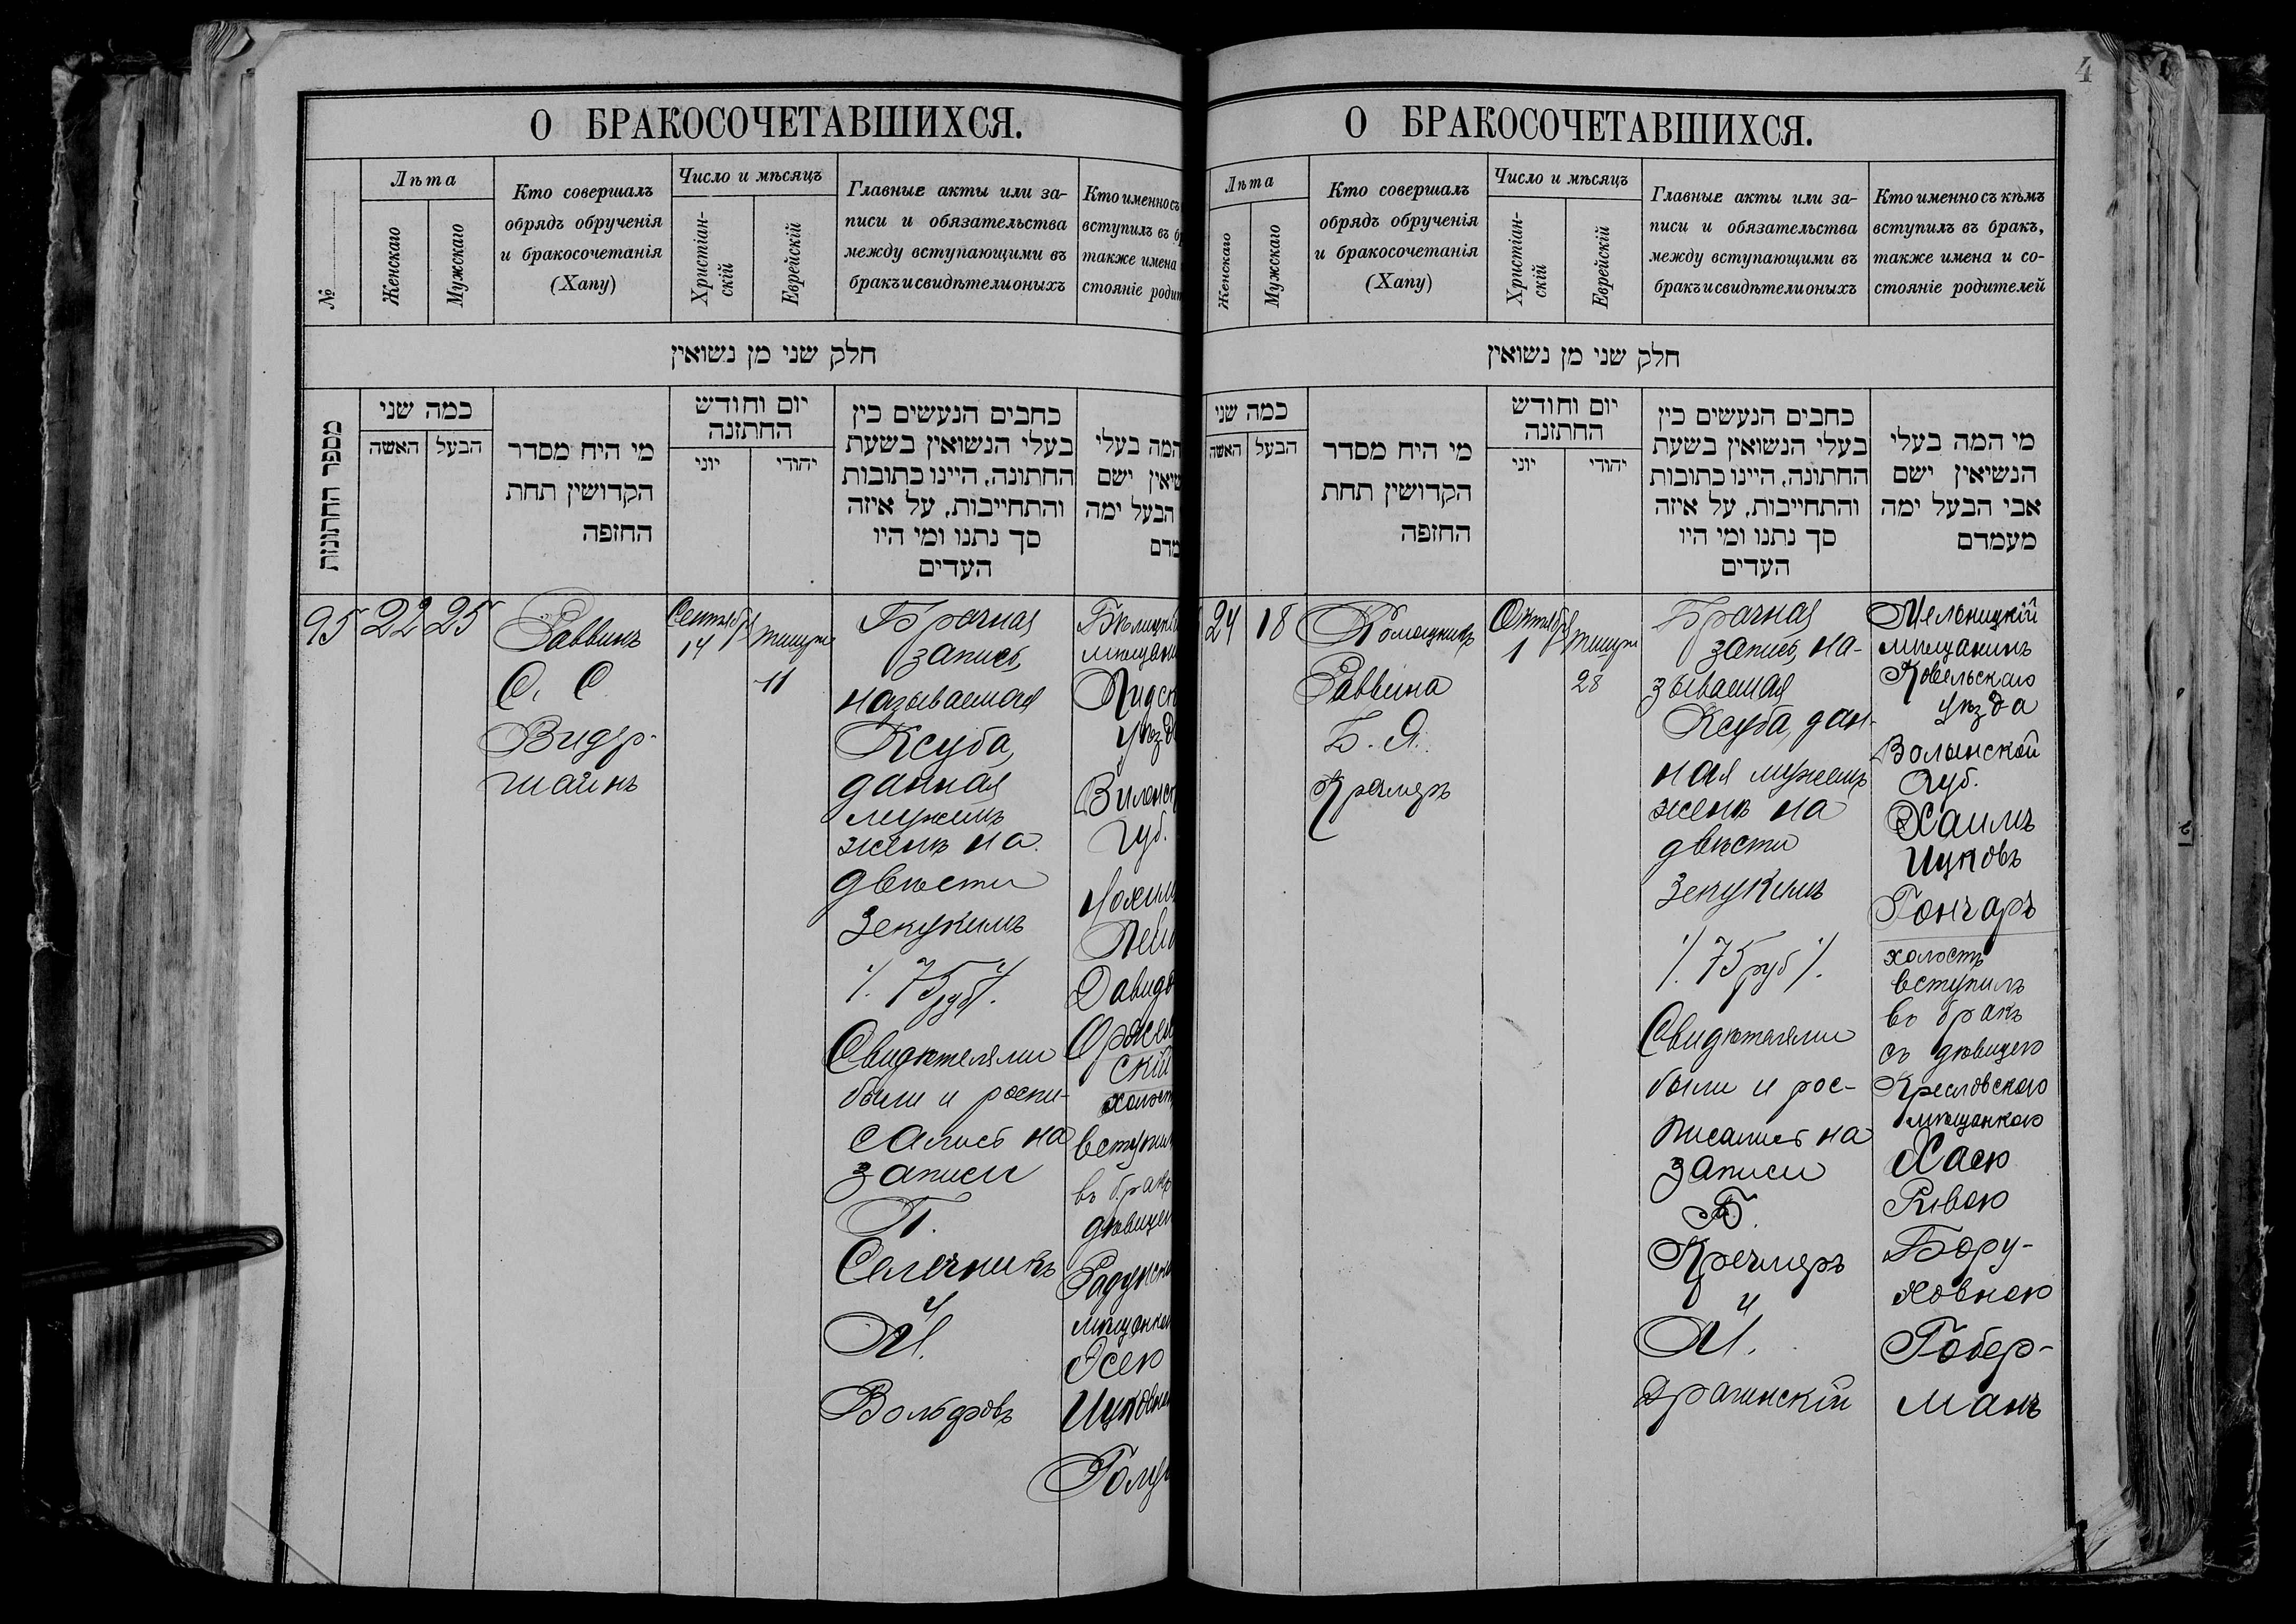 О БРАКОСОЧЕТАВШИХСЯ.
№
Лѣта
Женскаго
Мужскаго
Кто совершалъ
обрядъ обрученія
и бракосочетанія
(Хапу)
Число и мѣсяцъ
Христіан-
скій
Еврейскій
Главные акты или за-
писи и обязательства
между вступающими въ
бракъ и свидѣтели оныхъ
Кто именно съ
вступилъ въ
также имена
стояніе
חלק שני מן נשואין
מספר החתונות
כמה שני
האשה
הבעל
מי היה מסדר
הקדושין תחת
החופה
יום וחודש
החתונה
יוני
יהודי
כתבים הנעשים בין
בעלי הנשואין בשעת
החתונה, היינו כתובות
והתחייבות, על איזה
סך נתנו ומי היו
העדים
המה בעלי
ישם
הבעל ימה
95
22
25
Раввинъ
О. С.
Видер-
шайнъ
Сентябр
14
тишри
11
Брачная
запись,
называемая
Ксуба,
данная
мужемъ
женѣ на
двѣсти
Зекукимъ
/. 75 руб /.
Свидѣтелями
были и роспи-
сались на
записи
П.
Селечникъ
И.
Вольфовъ
уѣзд
Губ.
скій
вступил
въ бракъ
Эсею
О БРАКОСОЧЕТАВШИХСЯ.
4
Лѣта
Женскаго
Мужскаго
Кто совершалъ
обрядъ обрученія
и бракосочетанія
(Хапу)
Число и мѣсяцъ
Христіан-
скій
Еврейскій
Главные акты или за-
писи и обязательства
между вступающими въ
бракъ и свидѣтели оныхъ
Кто именно съ кѣмъ
вступилъ въ бракъ,
также имена и со-
стояніе родителей
חלק שני מן נשואין
כמה שני
האשה
הבעל
מי היה מסדר
הקדושין תחת
החופה
יום וחודש
החתונה
יוני
יהודי
כתבים הנעשים בין
בעלי הנשואין בשעת
החתונה, היינו כתובות
והתחייבות, על איזה
סך נתנו ומי היו
העדים
מי המה בעלי
הנשיאין ישם
אבי הבעל ימה
מעמדם
24
18
Помощникъ
Раввина
Б. Я.
Кремеръ
Октябр
1
тишри
28
Брачная
запись, на-
зываемая
Ксуба, дан-
ная мужемъ
женѣ на
двѣсти
Зекукимъ
/. 75 руб /.
Свидѣтелями
были и рос-
писались на
записи
Б.
Кремеръ
И.
Драгинскій
Мельницкій
мѣщанинъ
Ковельскаго
уѣзда
Волынской
Губ.
Хаимъ
Ицковъ
Гончаръ
холостъ
вступилъ
въ бракъ
съ дѣвицею
Кресловскою
мѣщанкою
Хаею
Ривою
Бору-
ховною
Гобер-
манъ